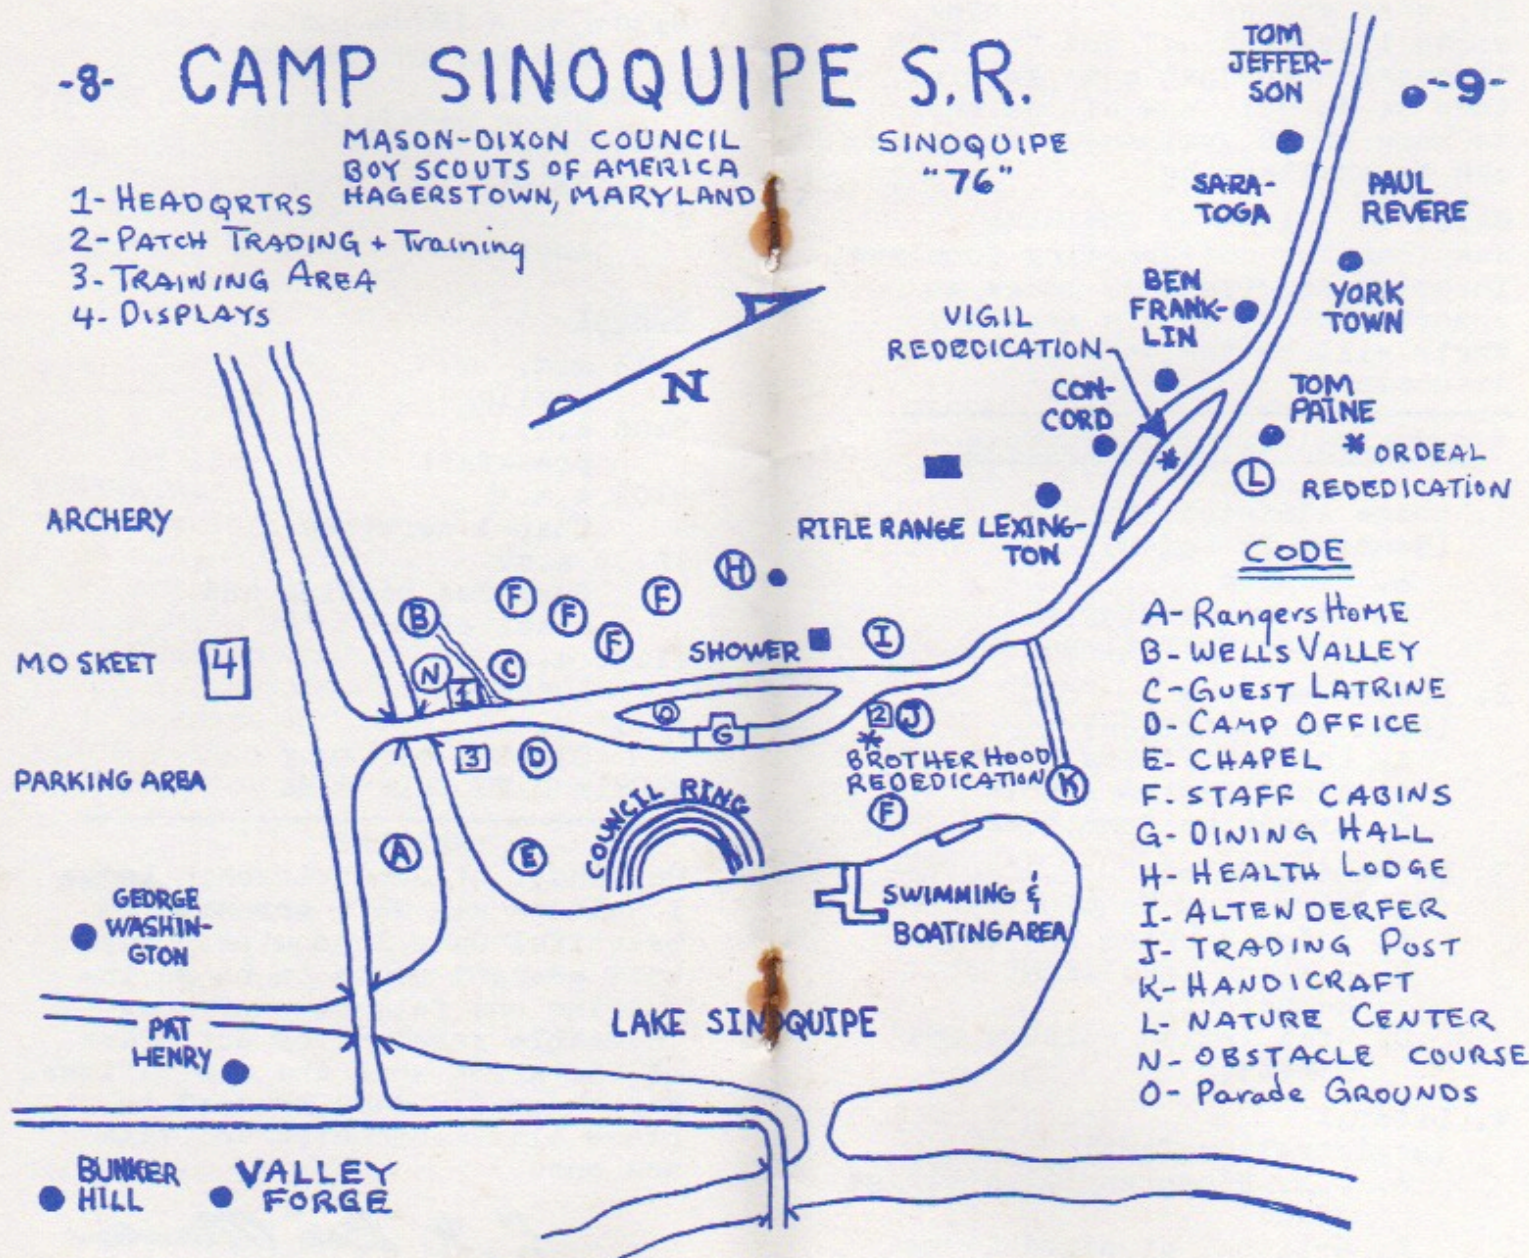 -8- CAMP SINOQUIPE S.R.
MASON-DIXON COUNCIL
BOY SCOUTS OF AMERICA
HAGERSTOWN, MARYLAND
SINOQUIPE
"76"
-9-
1- HEADQRTRS
2- PATCH TRADING + Training
3- TRAINING AREA
4- DISPLAYS
TOM
JEFFER-
SON
SARA-
TOGA
PAUL
REVERE
BEN
FRANK-
LIN
YORK
TOWN
VIGIL
REDEDICATION
N
CON-
CORD
TOM
PAINE
* ORDEAL
REDEDICATION
*
L
ARCHERY
RIFLE RANGE
LEXING-
TON
H
F
F
F
F
B
MO SKEET
4
N
1
C
SHOWER
I
O
G
2
J
*
BROTHERHOOD
REDEDICATION
K
F
3
D
PARKING AREA
COUNCIL RING
A
E
SWIMMING &
BOATING AREA
GEORGE
WASHIN-
GTON
LAKE SINOQUIPE
PAT
HENRY
BUNKER
HILL
VALLEY
FORGE
CODE
A- Rangers Home
B- WELLS VALLEY
C- GUEST LATRINE
D- CAMP OFFICE
E- CHAPEL
F. STAFF CABINS
G- DINING HALL
H- HEALTH LODGE
I- ALTENDERFER
J- TRADING POST
K- HANDICRAFT
L- NATURE CENTER
N- OBSTACLE COURSE
O- Parade GROUNDS